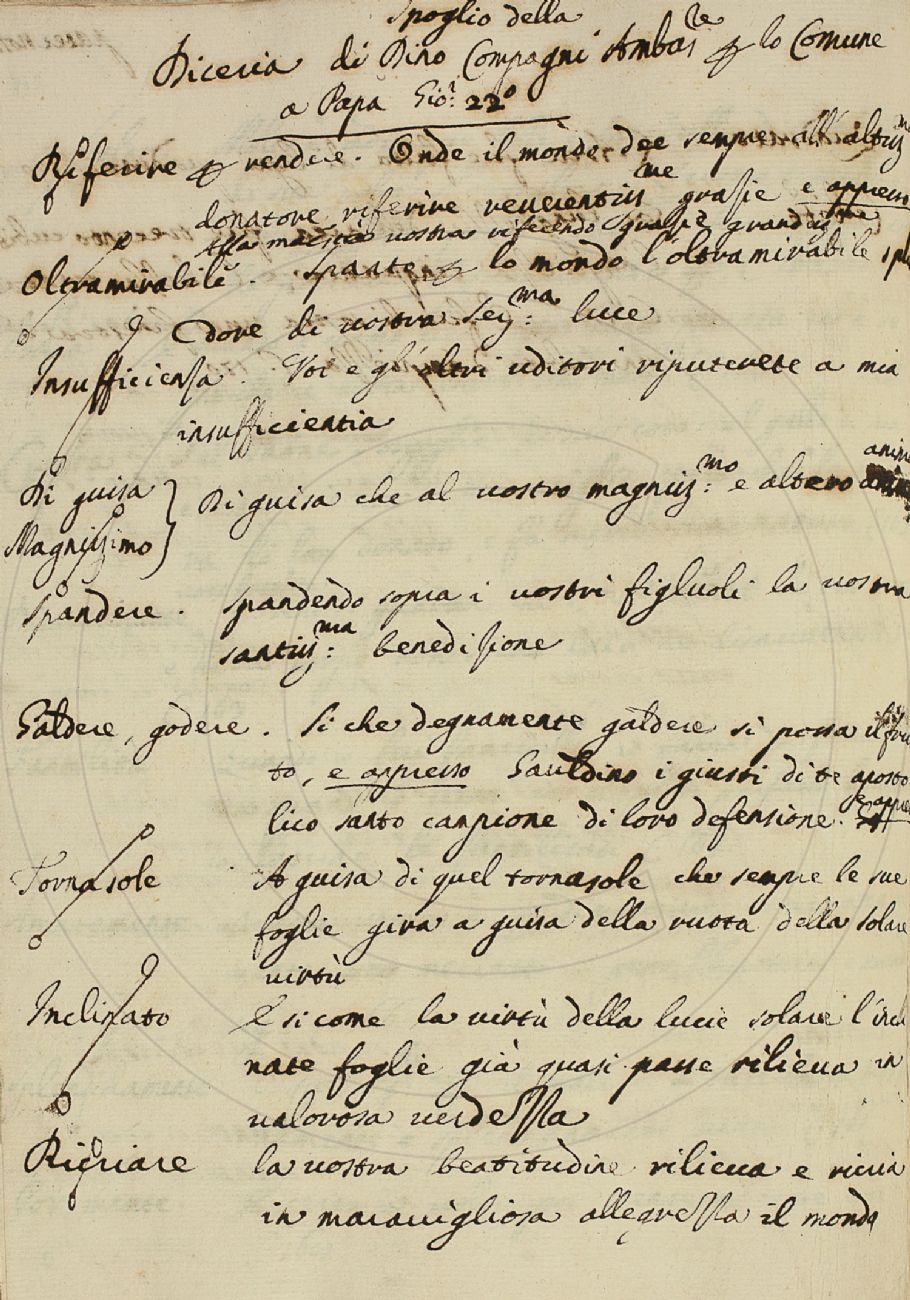 Spoglio della
Diceria di Dino Compagni Ambas.re p lo Comune
a Papa Gio: 22°
Riferire p rendere. Onde il mondo dee senpre all' altiss.mo
donatore riferire reverentiss.me grasie e appresso
alla maestà vostra riferendo grasie grandiss.me
Oltramirabile. Spaate p lo mondo l'oltramirabile sple
dore di vostra Ser.ma luce
Insufficiensa. Voi e gli altri uditori riputerete a mia
insufficientia
Di guisa Di guisa che al vostro magniss.mo e altero animo
Magnissimo
Spandere. Spandendo sopra i vostri figluoli la vostra
santiss.ma benedisione
Galdere, godere. Si che degnamente galdere si possa il fru
to, e appresso Gauldino i giusti di te aposto
lico santo canpione di loro defensione. e appre
Tornasole A guisa di quel tornasole che senpre le sue
foglie gira a guisa della ruota della solare
virtù
Inclinato E si come la virtù della lucie solare l'incli
nate foglie già quasi passe rilieva in
valorosa verdessa
Ricriare la vostra beatitudine rilieva e ricria
in maravigliosa allegressa il mondo